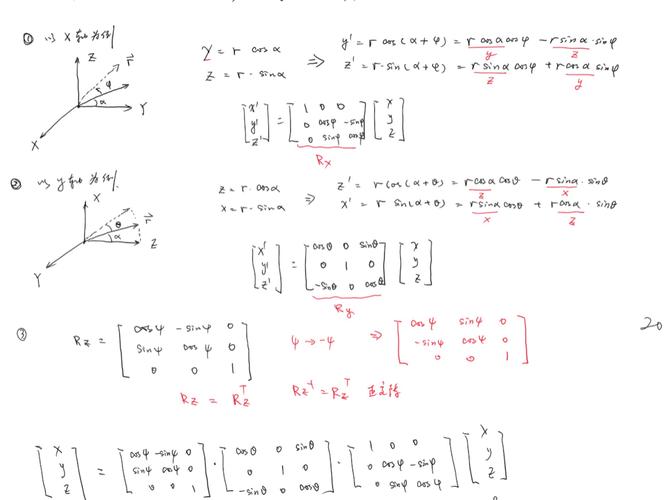 ① 以 X 轴为例
Z
r⃗
φ
α
Y
X
y = r cosα
z = r · sinα
⇒ y' = r cos(α+φ) = r cosα cosφ - r sinα · sinφ
y
z' = r · sin(α+φ) = r sinα cosφ + r cosα · sinφ
z y
[x' y' z'] = [1 0 0; 0 cosφ -sinφ; 0 sinφ cosφ] [x y z]
Rx
② 以 y 轴为例
X
r⃗
θ
α
Z
Y
z = r · cosα
x = r · sinα
⇒ z' = r cos(α+θ) = r cosα cosθ - r sinα · sinθ
z x
x' = r sin(α+θ) = r sinα cosθ + r cosα · sinθ
x z
[x' y' z'] = [cosθ 0 sinθ; 0 1 0; -sinθ 0 cosθ] [x y z]
Ry
③
Rz = [cosψ -sinψ 0; sinψ cosψ 0; 0 0 1] ψ → -ψ ⇒ [cosψ sinψ 0; -sinψ cosψ 0; 0 0 1]
20
Rz = Rz^T
[x y z] = [cosψ -sinψ 0; sinψ cosψ 0; 0 0 1] · [cosθ 0 sinθ; 0 1 0; -sinθ 0 cosθ] · [1 0 0; 0 cosφ -sinφ; 0 sinφ cosφ] [x y z]